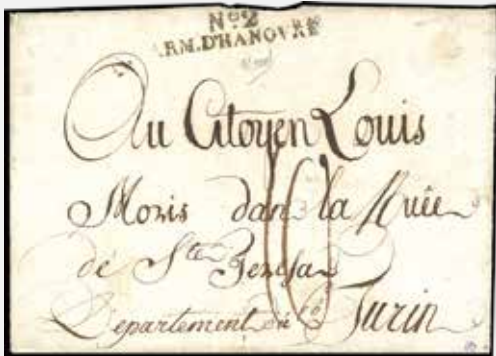 Nº 2
ARM. D'HANOVRE
Au Citoyen Louis
Moris dans la Ruêe
de Ste Teresa
Departement du Pô Turin
10